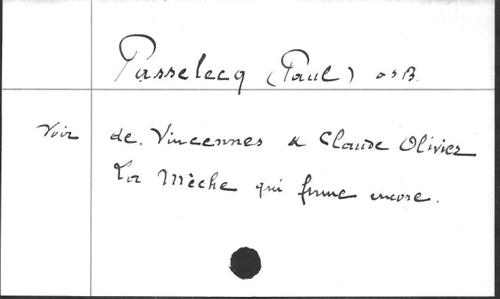 Passelecq (Paul) OSB.
Voir de Vincennes & Claude Olivier
La Mèche qui fume encore.